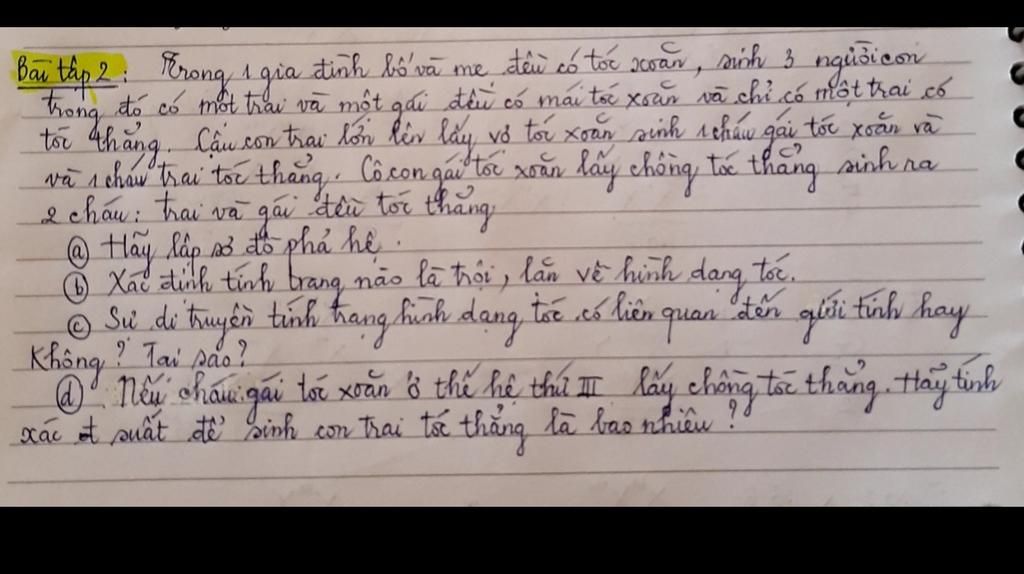 Bài tập 2: Trong 1 gia đình bố và mẹ đều có tóc xoăn, sinh 3 người con
trong đó có một trai và một gái đều có mái tóc xoăn và chỉ có một trai có
tóc thẳng. Cậu con trai lớn lên lấy vợ tóc xoăn sinh 1 cháu gái tóc xoăn và
và 1 cháu trai tóc thẳng. Cô con gái tóc xoăn lấy chồng tóc thẳng sinh ra
2 cháu: trai và gái đều tóc thẳng
a Hãy lập sơ đồ phả hệ.
b Xác định tính trạng nào là trội, lặn về hình dạng tóc.
c Sự di truyền tính trạng hình dạng tóc có liên quan đến giới tính hay
Không? Tại sao?
d Nếu cháu gái tóc xoăn ở thế hệ thứ III lấy chồng tóc thẳng. Hãy tính
xác suất để sinh con trai tóc thẳng là bao nhiêu?